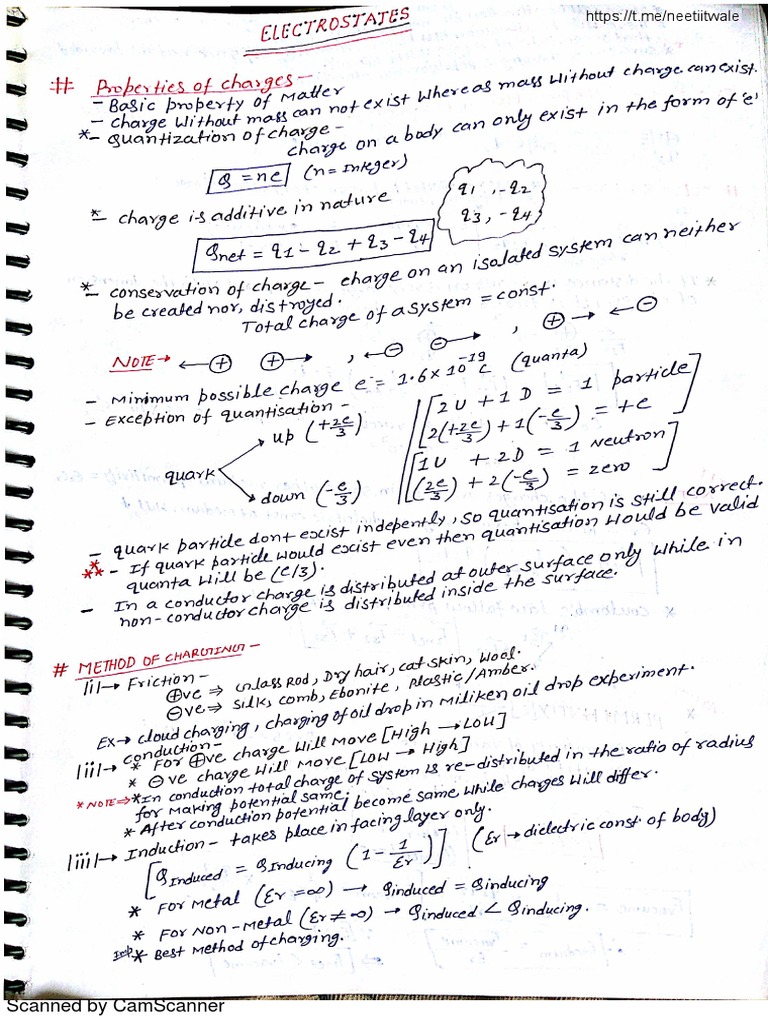 https://t.me/neetiitwale
ELECTROSTATES
# Properties of charges -
- Basic property of Matter
- charge Without mass can not exist Where as mass Without charge can exist.
*- Quantization of charge -
charge on a body can only exist in the form of 'e'
Q = ne (n = Integer)
q1, -q2
q3, -q4
*- charge is additive in nature
Qnet = q1 - q2 + q3 - q4
*- conservation of charge - charge on an isolated system can neither
be created nor, distroyed.
Total charge of a system = const.
NOTE→ ←⊕ ⊕→ , ←⊖ ⊖→ , ⊕→ ←⊖
- Minimum possible charge e⁻ = 1.6 × 10⁻¹⁹ C (quanta)
- Exception of quantisation -
quark
up (+2e/3)
down (-e/3)
[2U + 1D = 1 particle
2(+2e/3) + 1(-e/3) = +e]
[1U + 2D = 1 Neutron
(2e/3) + 2(-e/3) = zero]
- quark particle dont excist indepently, so quantisation is still correct.
*** - If quark particle would excist even then quantisation would be valid
quanta will be (e/3).
- In a conductor charge is distributed at outer surface only while in
non-conductor charge is distributed inside the surface.
# METHOD OF CHARGING -
|i|→ Friction -
⊕ve ⇒ Glass Rod, Dry hair, cat skin, wool.
⊖ve ⇒ Silk, comb, Ebonite, Plastic/Amber.
Ex→ cloud charging, charging of oil drop in Miliken oil drop experiment.
|ii|→ conduction -
* For ⊕ve charge Will move [High → Low]
* ⊖ve charge Will Move [Low → High]
* NOTE⇒ * In conduction total charge of system is re-distributed in the ratio of radius
for Making potential same.
* After conduction potential become same while charges will differ.
|iii|→ Induction - takes place in facing layer only.
[QInduced = QInducing (1 - 1/Er)] (Er → dielectric const. of body)
* For Metal (Er = ∞) → Qinduced = Qinducing
* For Non-Metal (Er ≠ ∞) → Qinduced < Qinducing.
Imp * Best Method of charging.
Scanned by CamScanner